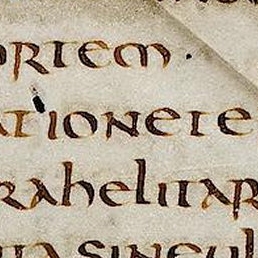 ortem ·
ationeete
rahelitar
sineul